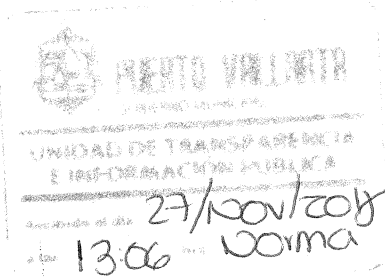 PUERTO VALLARTA
UNIDAD DE TRANSPARENCIA
E INFORMACIÓN PÚBLICA
Recibido el día 27/Nov/2018
a las 13:06 hrs Norma